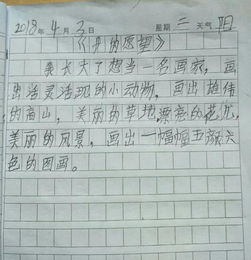 2018年4月3日 星期二 天气阴
《我的愿望》
我长大了想当一名画家,画
出活灵活现的小动物。画出雄伟
的高山,美丽的草地,漂亮的花朵,
美丽的风景,画出一幅幅五颜六
色的图画。